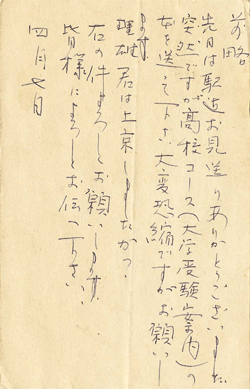 前略
先日は駅迄お見送りありがとうございました
突然ですが高校コース(大学受験案内)の
を送って下さい 大変恐縮ですがお願いし
ます。
理雄君は上京しましたか?
右の件よろしくお願いします。
皆様によろしくお伝へ下さい。
四月七日